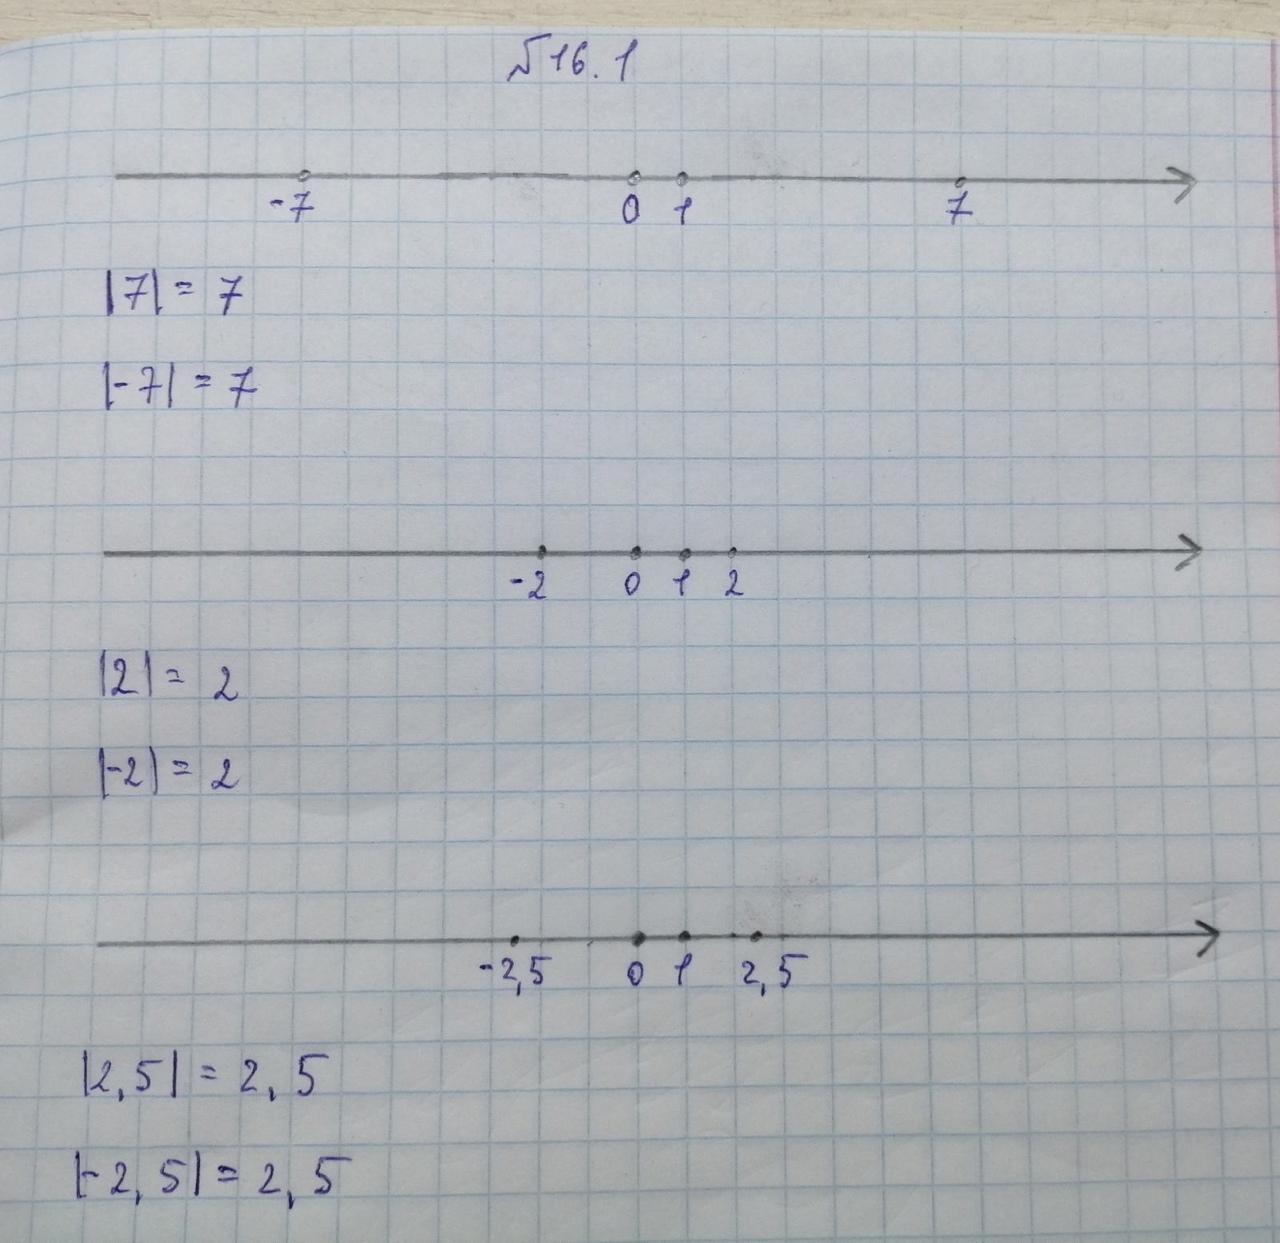 №16.1
-7 0 1 7
|7| = 7
|-7| = 7
-2 0 1 2
|2| = 2
|-2| = 2
-2,5 0 1 2,5
|2,5| = 2,5
|-2,5| = 2,5